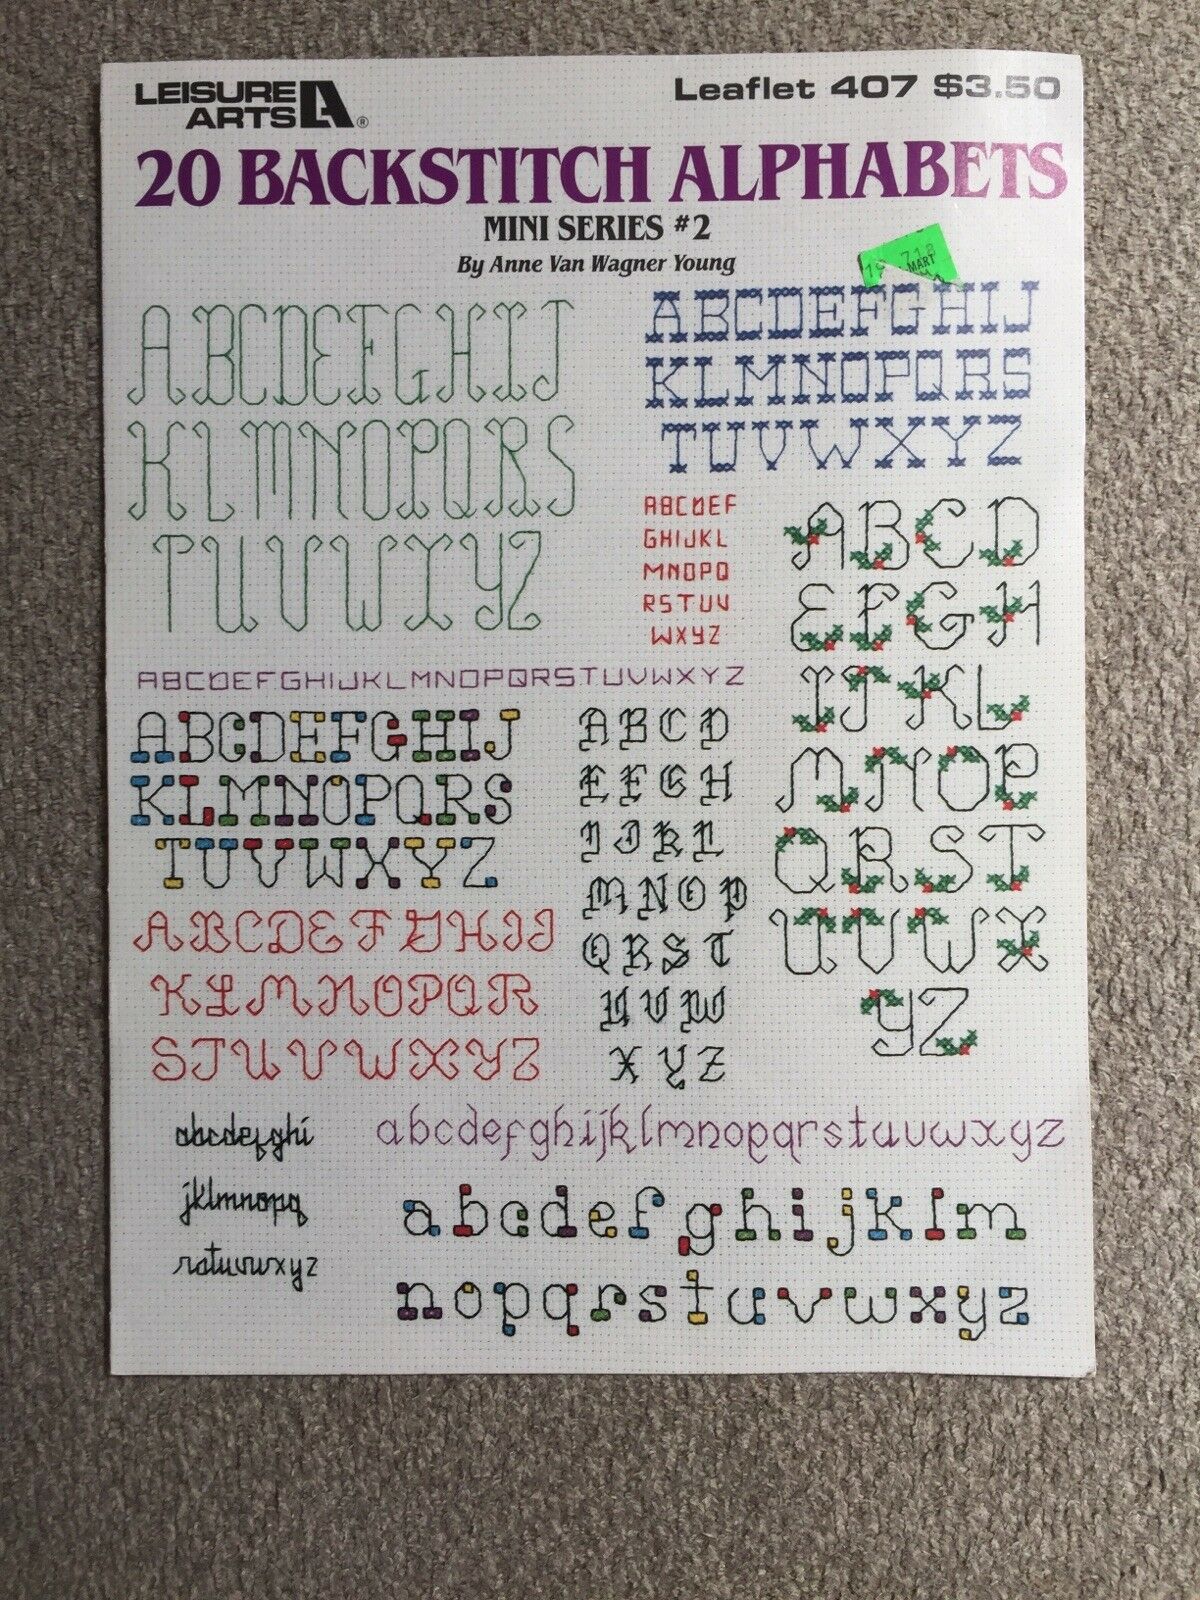 LEISURE
ARTS
®
Leaflet 407 $3.50
20 BACKSTITCH ALPHABETS
MINI SERIES #2
By Anne Van Wagner Young
MART
ABCDEFGHIJ
KLMNOPQRS
TUVWXYZ
ABCDEFGHIJ
KLMNOPQRS
TUVWXYZ
ABCDEF
GHIJKL
MNOPQ
RSTUV
WXYZ
ABCD
EFGH
IJKL
MNOP
QRST
UVWX
YZ
ABCDEFGHIJKLMNOPQRSTUVWXYZ
ABCDEFGHIJ
KLMNOPQRS
TUVWXYZ
ABCD
EFGH
IJKL
MNOP
QRST
UVW
XYZ
ABCDEFGHIJ
KLMNOPQR
STUVWXYZ
abcdefghi
jklmnopq
rstuvwxyz
abcdefghijklmnopqrstuvwxyz
abcdefghijklm
nopqrstuvwxyz